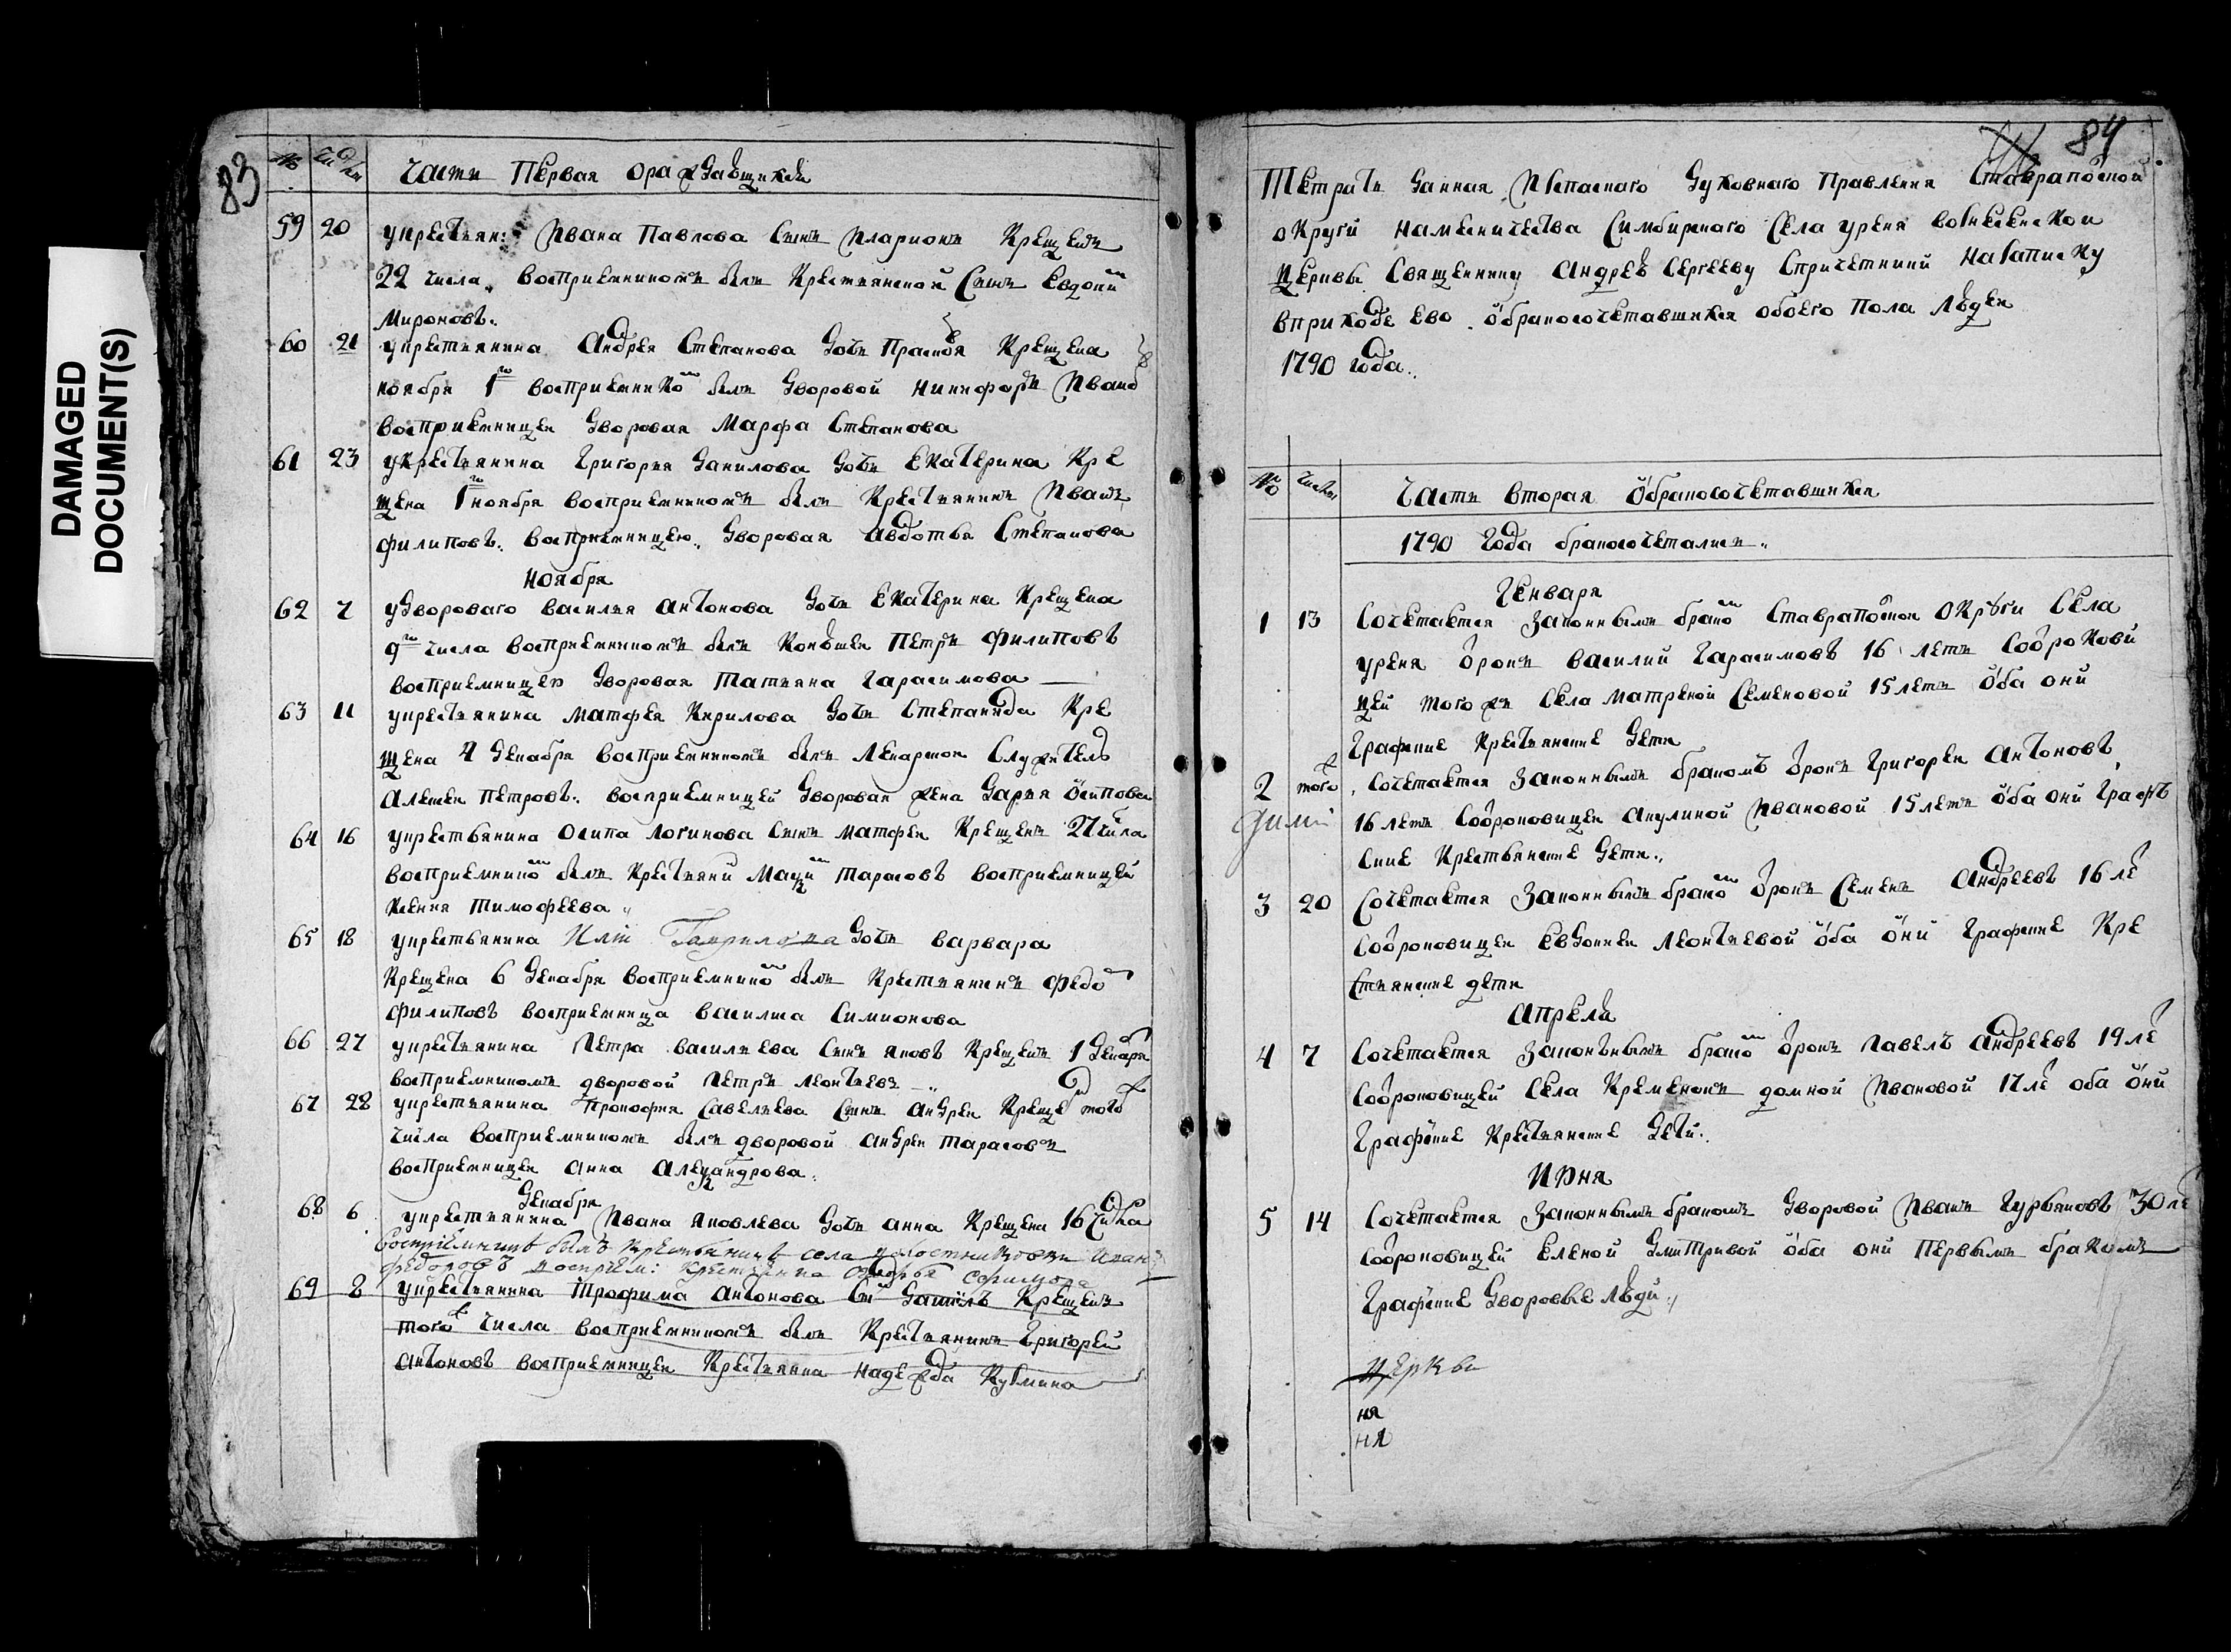 DAMAGED
DOCUMENT(S)
83
№ Числ
Часть Первая о раждавшихся
59 20 укрестьян: Ивана Павлова Сынъ Иларионъ Крещенъ
22 числа. Восприемникомъ былъ Крестьянской Сынъ Евдоким
Мироновъ.
60 21 укрестьянина Андрея Степанова дочь Прасковья Крещена
ноября 1го восприемником былъ дворовой Никифоръ Иванов
восприемницей дворовая Марфа Степанова
61 23 укрестьянина Григорья данилова дочь Екатерина Кре
щена 1го ноября восприемникомъ былъ Крестьянинъ Иванъ
филиповъ. восприемницею. дворовая авдотья Степанова
Ноября
62 7 удвороваго василья антонова дочь Екатерина Крещена
9го числа восприемникомъ былъ Конюшей Петръ филиповъ
восприемницей дворовая Татьяна Гарасимова
63 11 укрестьянина матфея Кирилова дочь Степанида Кре
щена 4 декабря восприемникомъ былъ Лекарской Служитель
Алексей Петровъ. восприемницей дворовая жена дарья осипова
64 16 укрестьянина Осипа Логинова Сынъ матфей Крещенъ 27 числа
восприемником былъ Крестьянин Максим Тарасовъ восприемницей
Ксения Тимофеева
65 18 укрестьянина Или Гаврилова дочь варвара
Крещена 6 декабря восприемником былъ Крестьянинъ федор
филиповъ восприемница василиса Симионова
66 27 укрестьянина Петра васильева Сынъ яковъ Крещенъ 1 декабря
восприемникомъ дворовой Петръ леонтьевъ
67 28 укрестьянина Прокофья Савельева Сынъ андрей Крещен того ж
числа восприемникомъ былъ дворовой андрей тарасовъ
восприемницей анна александрова.
Декабря
68 6 укрестьянина Ивана яковлева дочь анна Крещена 16 числа
воспріемникъ былъ крестьянинъ села Иван
федоровъ воспріем: крестьянка
69 8 укрестьянина Трофима антонова Сын данилъ Крещенъ
того ж числа восприемникомъ былъ Крестьянинъ Григорей
антоновъ восприемницей Крестьянка надежда Кузмина
84
Тетрать данная Испаскаго духовнаго Правленя Ставрапольской
округи намесничества Симбирскаго Села уреня вознесенской
Церквы Священнику андрею Сергееву Спричетники назаписку
вприходе ево. обракосочетавшихся обоего пола людей
1790 года.
№ Числы
Часть вторая обракосочетавшихся
1790 года бракосочетались.
Генваря
1 13 Сочетается законнымъ браком Ставрапольской округи Села
уреня отрокъ василий Гарасимовъ 16 летъ Соотрокови
цей того жъ села матреной Семеновой 15 летъ оба они
Графские Крестьянские дети
2 того ж. Сочетается законнымъ бракомъ отрокъ Григорей антоновъ
16 летъ Соотроковицей акулиной Ивановой 15 летъ оба они Граф
ские Крестьянские дети.
3 20 Сочетается законнымъ браком отрокъ Семенъ андреевъ 16 ле
Соотроковицей Евдокией Леонтьевой оба они Графские Кре
стьянские дети
Апреля
4 7 Сочетается законънымъ браком отрокъ Павелъ андреевъ 19 ле
Соотроковицей Села Кременокъ домной Ивановой 17 ле оба они
Графские Крестьянские дети.
Июня
5 14 Сочетается законнымъ бракомъ дворовой Иванъ Гурьяновъ 30 ле
Соотроковицей Еленой дмитривой оба они первымъ бракомъ
Графские дворовые люди
церкви
ня
ня